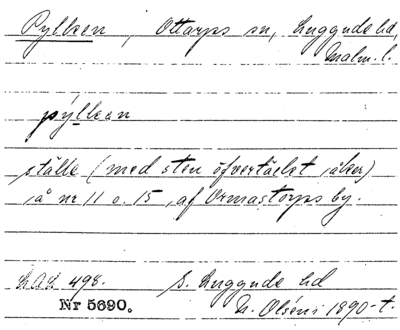 Pylken, Ottarps sn, Luggude hd,
Malm. l.
pýlkan
ställe (med sten öfvertäckt i åker)
å nr 11 o. 15, af Ormastorps by.
LAL 498. S. Luggude hd
Nr 5690. N. Olséni 1890-t.